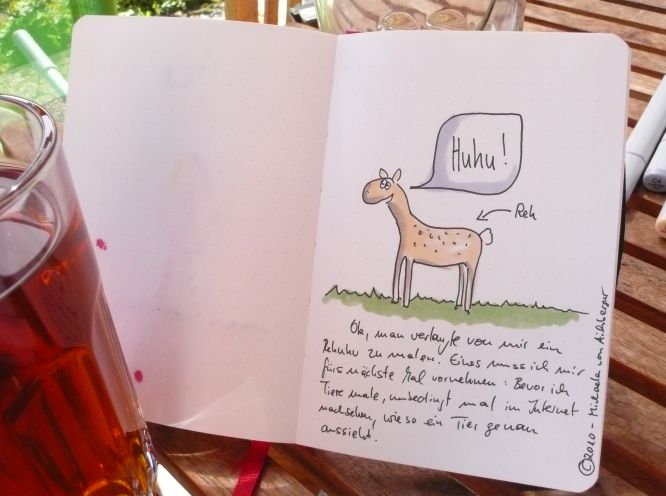 Huhu!
Reh
Ok, man verlangte von mir ein
Rehuhu zu malen. Eines muss ich mir
fürs nächste Mal vornehmen: Bevor ich
Tiere male, unbedingt mal im Internet
nachsehen, wie so ein Tier genau
aussieht.
©2010 - Michaela von Aichberger